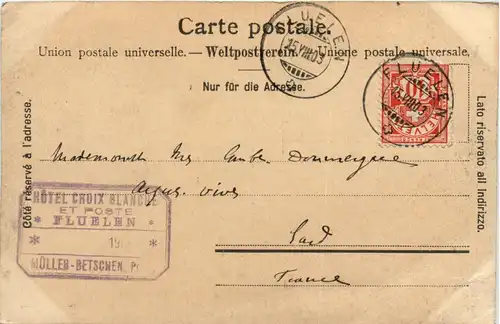 Carte postale.
Union postale universelle. — Weltpostverein. — Unione postale universale.
Nur für die Adresse.
Côté réservé à l'adresse.
Lato riservato all Indirizzo.
FLUELEN
15.VIII.03
10
HELVETIA
UELEN
15.VIII.03
Aigues vives
Gard
France
HÔTEL CROIX BLANCHE
ET POSTE
* FLUELEN *
* 19 *
MÜLLER-BETSCHEN, Pr